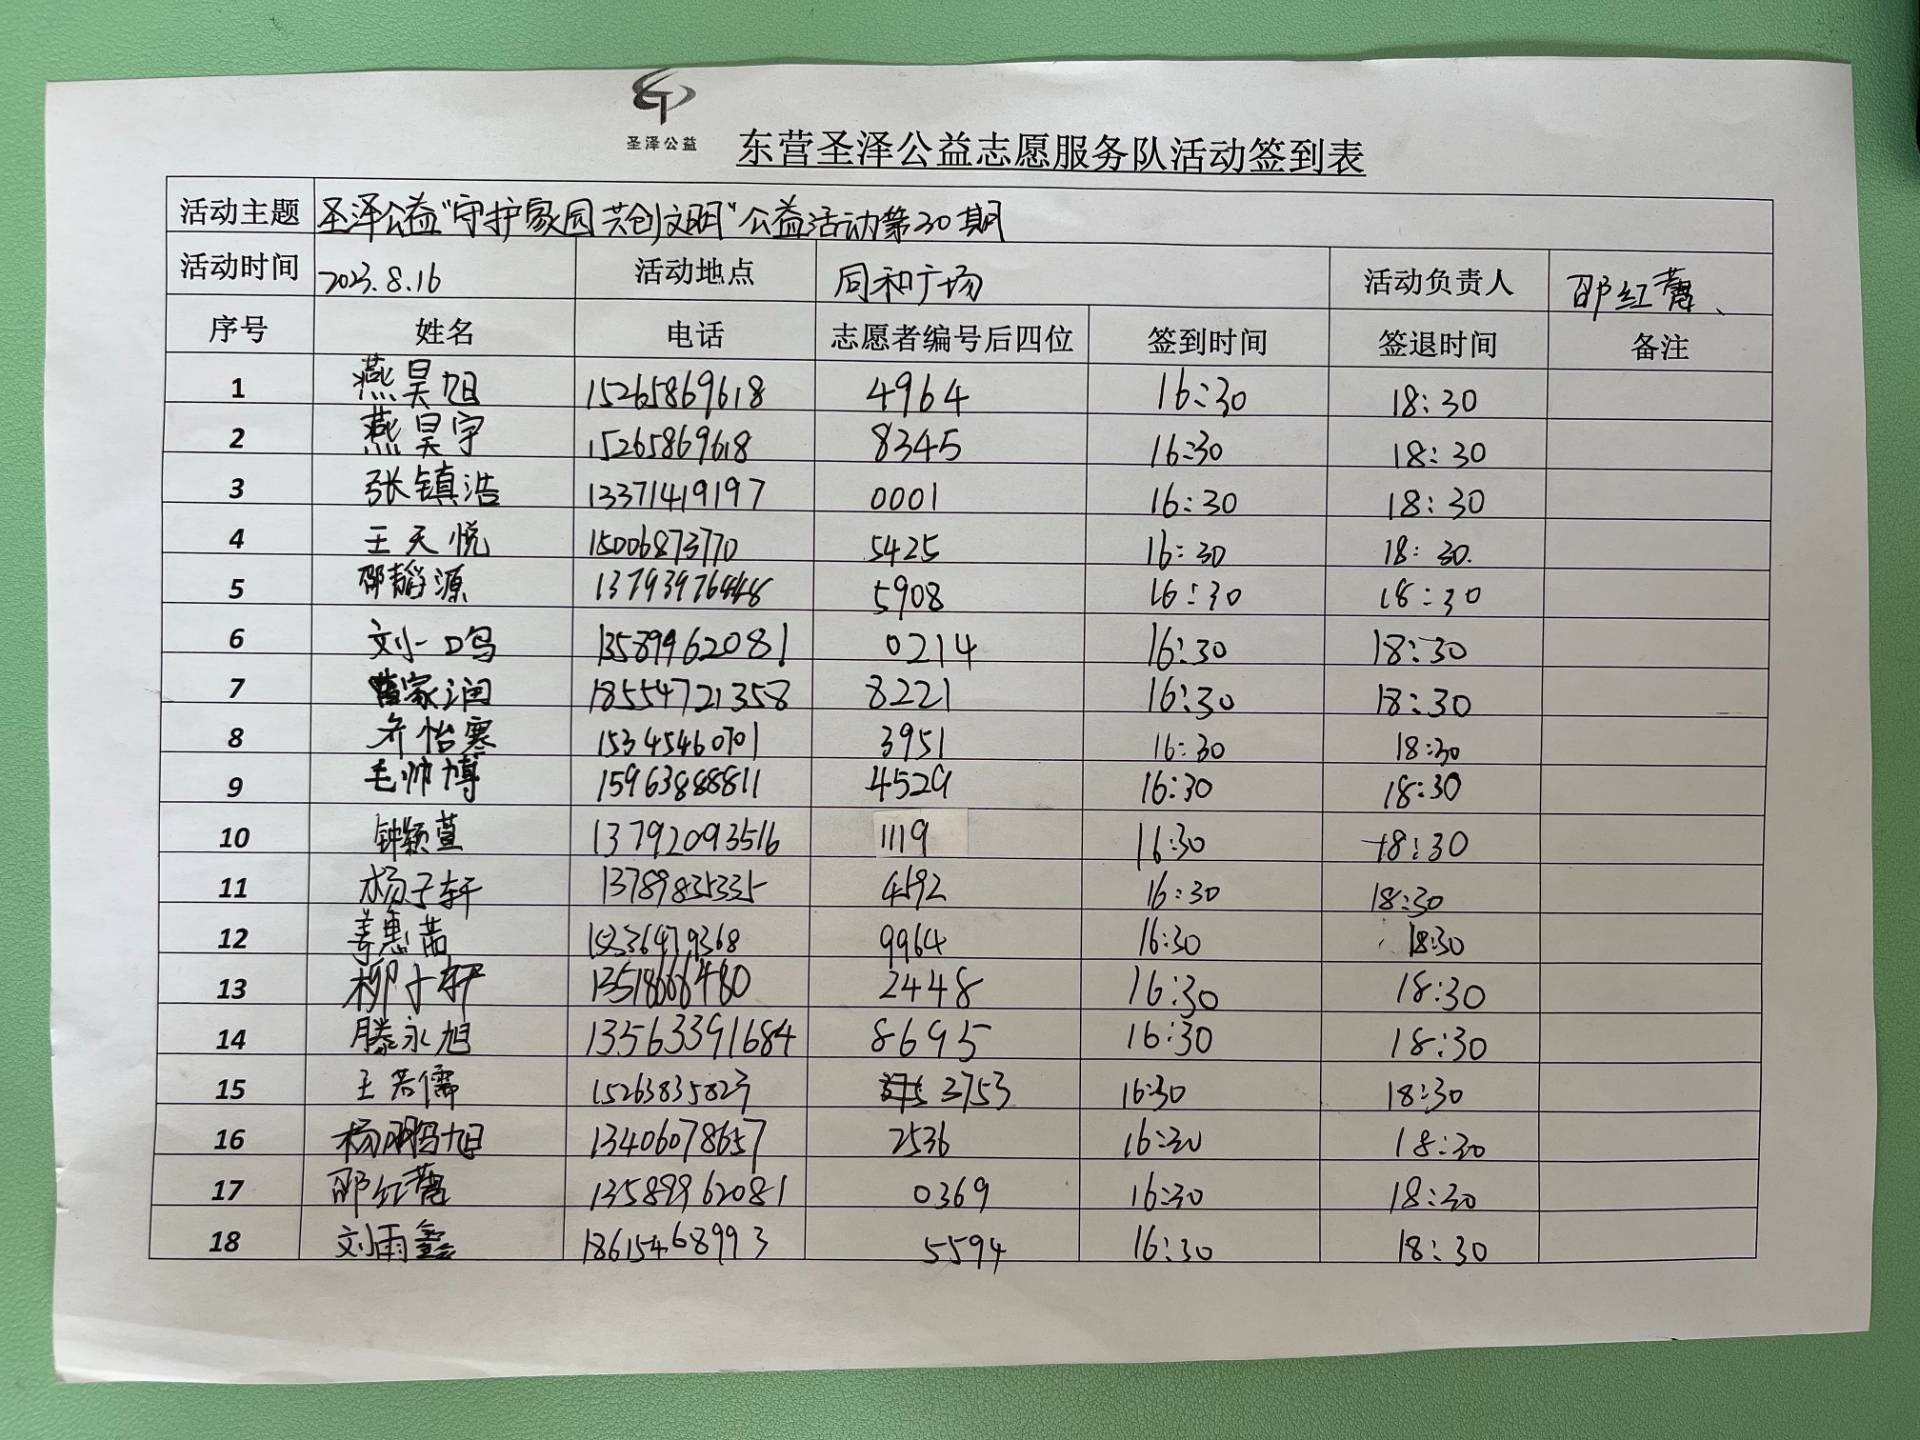 圣泽公益
东营圣泽公益志愿服务队活动签到表
活动主题 圣泽公益"守护家园 共创文明"公益活动第30期
活动时间 2023.8.16 活动地点 同和广场 活动负责人 邵红
序号 姓名 电话 志愿者编号后四位 签到时间 签退时间 备注
1 燕昊旭 15265869618 4964 16:30 18:30
2 燕昊宇 15265869618 8345 16:30 18:30
3 张镇浩 13371419197 0001 16:30 18:30
4 王天悦 15006873770 5425 16:30 18:30.
5 邵韬源 5908 16:30 18:30
6 刘一鸣 13589962081 0214 16:30 18:30
7 家润 18554721358 8221 16:30 18:30
8 怡寒 15345460701 3951 16:30 18:30
9 毛帅博 15963888811 4529 16:30 18:30
10 钟颖萱 13792093516 1119 16:30 18:30
11 杨子轩 13789835335 4592 16:30 18:30
12 姜惠茜 15236479368 9964 16:30 18:30
13 柳 轩 13518666480 2448 16:30 18:30
14 滕永旭 13563391684 8695 16:30 18:30
15 王若儒 15263835827 3753 16:30 18:30
16 杨 旭 13406078657 2536 16:30 18:30
17 邵红 13589962081 0369 16:30 18:30
18 刘雨鑫 18615468993 5594 16:30 18:30